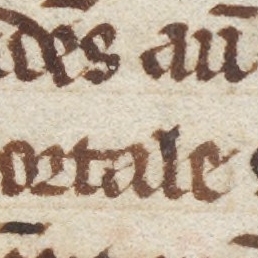 des aū
ortale